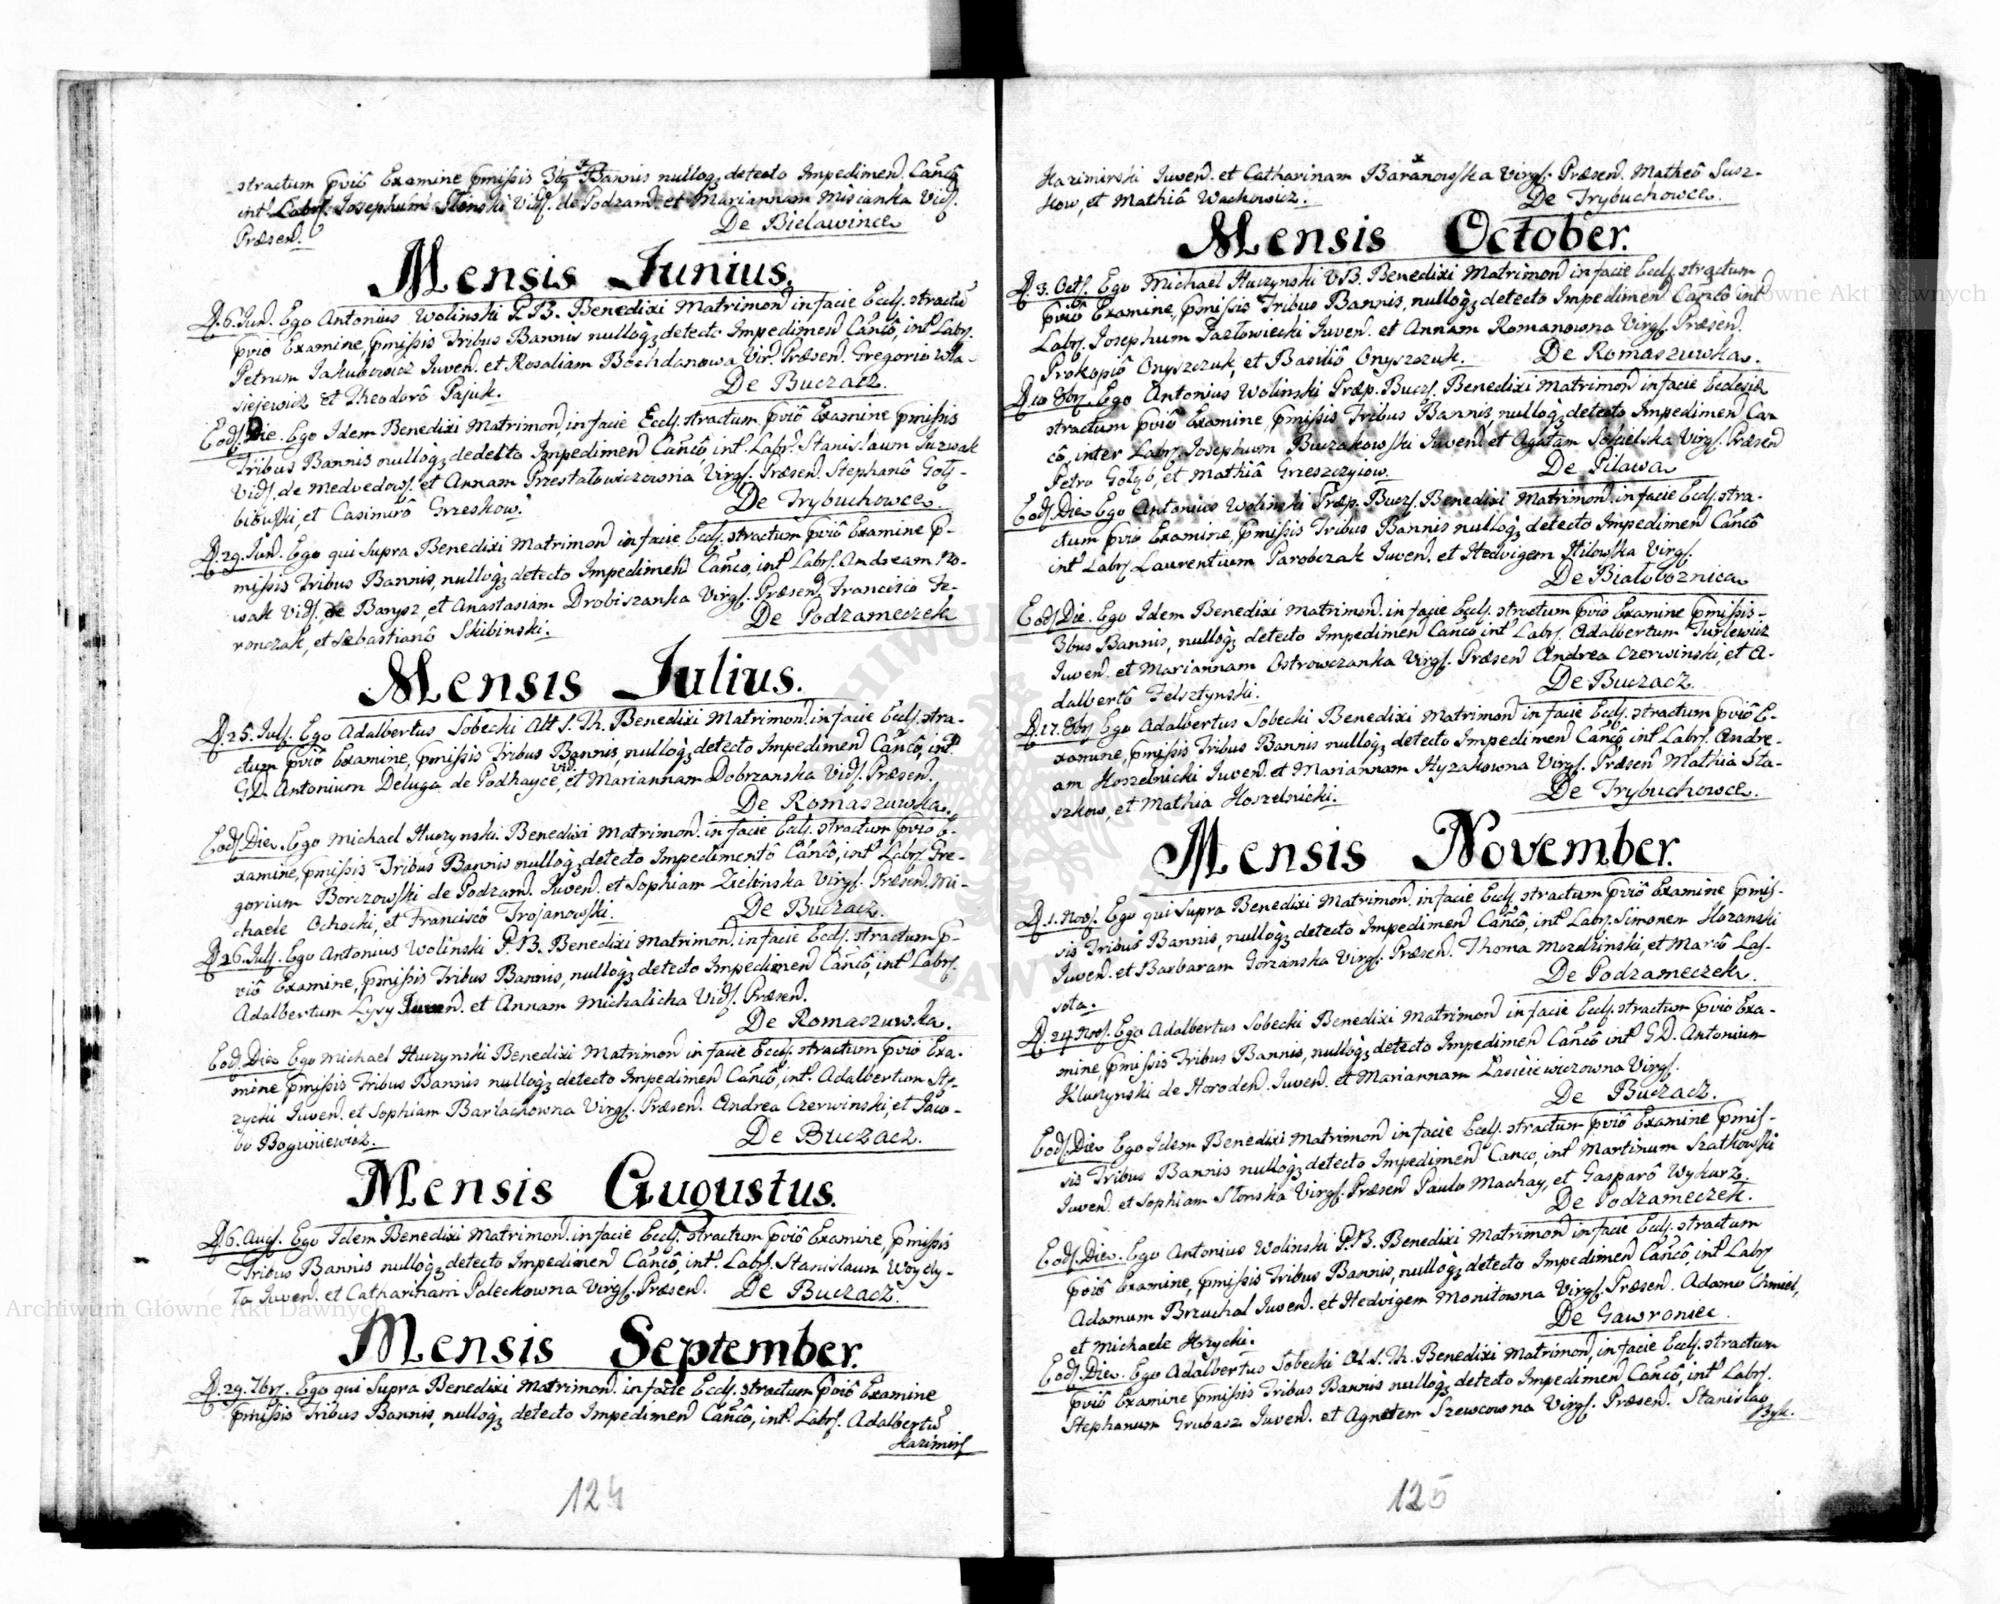 stractum pviô Examine pmissis 3bg Bannis nullogz detecto Impedimen. Canco
int Labs. Josephum Slonski Vids. de Podzam. et Mariannam Misianka Vids.
Præsen.
De Bielawince
Mensis Junius.
D. 6. Jun. Ego Antonius Wolinski P. B. Benedixi Matrimon in facie Eccls. stractu
pviô Examine, pmissis Tribus Bannis nullogz detecto Impedimen Cancô, int Labs.
Petrum Jakubowicz Iuven. et Rosaliam Bohdanowa Vir. Præsen. Gregorio Wła-
siejewicz et Theodorô Pajuk.
De Buczacz.
Eods. Die. Ego Idem Benedixi Matrimon, in facie Eccls. stractum pviô Examine pmissis
Tribus Bannis nullogz dedecto Impedimen Cancô int. Labs. Stanislaum Suzwak
Vids. de Medvedows. et Annam Przestalowiczowna Virgs. Præsen. Stephanô Gołę-
biouski, et Casimirô Grzeskow.
De Trybuchowce.
D. 29. Jun. Ego qui Supra Benedixi Matrimon in facie Eccls. stractum pviô Examine p-
missis Tribus Bannis, nullogz detecto Impedimen Cancô, int Labs. Andream No-
wak Vids. de Barysz, et Anastasiam Drobiszanka Virgs. Præsen. Francisco Fe-
ronczak, et Sebastianô Skibinski.
De Podzameczek
Mensis Julius.
D. 25. Juls. Ego Adalbertus Sobecki Alt S. Th. Benedixi Matrimon in facie Eccls. stra-
ctum pviô Examine, pmissis Tribus Bannis, nullogz detecto Impedimen Cancô, int
GD. Antonium Deluga de Podhayce vid. et Mariannam Dobrzanska Vids. Præsen.
De Romaszuwka.
Eods. Die. Ego Michael Huczynski Benedixi Matrimon. in facie Eccls. stractum pviô E-
xamine, pmissis Tribus Bannis nullogz detecto Impedimentô Cancô, int. Labs. Gre-
gorium Borczowski de Podzam. Iuven. et Sophiam Zielinska Virgs. Præsen. Mi-
chaele Ochocki, et Franciscô Trojanowski.
De Buczacz.
D. 26. Juls. Ego Antonius Wolinski P. B. Benedixi Matrimon. in facie Eccls. stractum p-
viô Examine, pmissis Tribus Bannis, nullogz detecto Impedimen Cancô, int. Labs.
Adalbertum Lysy Iuven. et Annam Michalicha Vids. Præsen.
De Romaszuwka.
Eods. Die Ego Michael Huczynski Benedixi Matrimon in facie Eccls. stractum pviô Exa-
mine pmissis Tribus Bannis nullogz detecto Impedimen Cancô, int. Adalbertum Ste-
zycki Iuven. et Sophiam Barlachowna Virgs. Præsen. Andrea Czerwinski, et Jaco-
bo Boguniewicz.
De Buczacz.
Mensis Augustus.
D. 6. Augs. Ego Idem Benedixi Matrimon. in facie Eccls. stractum pviô Examine, pmissis
Tribus Bannis nullogz detecto Impedimen Cancô, int. Labs. Stanislaum Woydy-
ła Iuven. et Catharinam Paleckowna Virgs. Præsen.
De Buczacz.
Mensis September.
D. 29. 7brs. Ego qui Supra Benedixi Matrimon. in facie Eccls. stractum pviô Examine
pmissis Tribus Bannis, nullogz detecto Impedimen Cancô, int. Labs. Adalbertû
Kazimirs
124
Kazimirski Iuven. et Catharinam Baranowska Virgs. Præsen. Matheô Susz-
kow, et Mathiâ Wachowicz.
De Trybuchowce.
Mensis October.
D. 3. Octs. Ego Michael Huczynski VB. Benedixi Matrimon in facie Eccls. stractum
pviô Examine, pmissis Tribus Bannis, nullogz detecto Impedimen Cancô int
Labs. Josephum Jazlowiecki Iuven. et Annam Romanowna Virgs. Præsen.
Prokopiô Onyszczuk, et Basiliô Onyszczuk.
De Romaszuwka.
D. 10 8brs. Ego Antonius Wolinski Præp. Buczs. Benedixi Matrimon in facie Ecclesiæ
stractum pviô Examine, pmissis Tribus Bannis, nullogz detecto Impedimen Can-
cô, inter Labs. Josephum Buczakowski Iuven. et Agatam Sokielska Virgs. Præsen
Petro Gołąb, et Mathiâ Grzeszczyiow.
De Pilawa
Eods. Die Ego Antonius Wolinski Præp. Buczs. Benedixi Matrimon. in facie Eccls. stra-
ctum pviô Examine, pmissis Tribus Bannis nullogz detecto Impedimen Cancô
int Labs Laurentium Parobczak Iuven. et Hedvigem Hilowska Virgs.
De Białoboznica
Eods. Die. Ego Idem Benedixi Matrimon. in facie Eccls. stractum pviô Examine pmissis
3bus Bannis, nullogz detecto Impedimen Cancô int Labs. Adalbertum Turlewicz
Iuven. et Mariannam Ostrowczanka Virgs. Præsen Andrea Czerwinski, et A-
dalbertô Felsztynski.
De Buczacz.
D. 17. 8brs Ego Adalbertus Sobecki Benedixi Matrimon in facie Eccls. stractum pviô E-
xamine, pmissis Tribus Bannis nullogz detecto Impedimen Cancô int Labs. Andre-
am Koszelnicki Iuven. et Mariannam Hyzakowna Virgs. Præsen Mathia Sta-
szkow, et Mathia Koszelnicki.
De Trybuchowce.
Mensis November.
D. 1. Novs. Ego qui Supra Benedixi Matrimon. in facie Eccls. stractum pviô Examine pmis-
sis Tribus Bannis, nullogz detecto Impedimen Cancô, int. Labs. Simonem Kozanski
Iuven. et Barbaram Gorzanska Virgs. Præsen. Thoma Mozdzinski, et Marcô Las-
sota.
De Podzameczek
D. 24 Novs. Ego Adalbertus Sobecki Benedixi Matrimon in facie Eccls. stractum pviô Exa-
mine, pmissis Tribus Bannis, nullogz detecto Impedimen Cancô int GD. Antonium
Kluczynski de Horoden. Iuven. et Mariannam Lasieiewiczowna Virgs.
De Buczacz.
Eods. Die Ego Idem Benedixi Matrimon in facie Eccls. stractum pviô Examine pmis-
sis Tribus Bannis nullogz detecto Impedimen Canco, int Martinum Szatkowski
Iuven. et Sophiam Slonska Virgs. Præsen Paulo Machay, et Gasparô Wykurz.
De Podzameczek.
Eods. Die. Ego Antonius Wolinski P. B. Benedixi Matrimon in facie Eccls. stractum
pviô Examine, pmissis Tribus Bannis, nullogz detecto Impedimen Cancô, int Labs
Adamum Brzuchal Iuven. et Hedvigem Monitowna Virgs. Præsen. Adamo Chmiel,
et Michaele Hrycki.
De Gawroniec.
Eods. Die. Ego Adalbertus Sobecki Al. S. Th. Benedixi Matrimon, in facie Eccls. stractum
pviô Examine pmissis Tribus Bannis nullogz detecto Impedimen Cancô, int Labs.
Stephanum Grubasz Iuven. et Agnetem Szewcowna Virgs. Præsen. Stanislao
Byk.
125
Archiwum Główne Akt Dawnych
Archiwum Główne Akt Dawnych